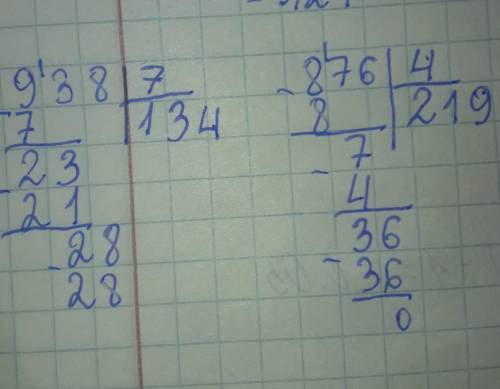 9'38 7
7 134
23
21
- 28
28
- 8'76 4
8 219
- 7
4
36
- 36
0